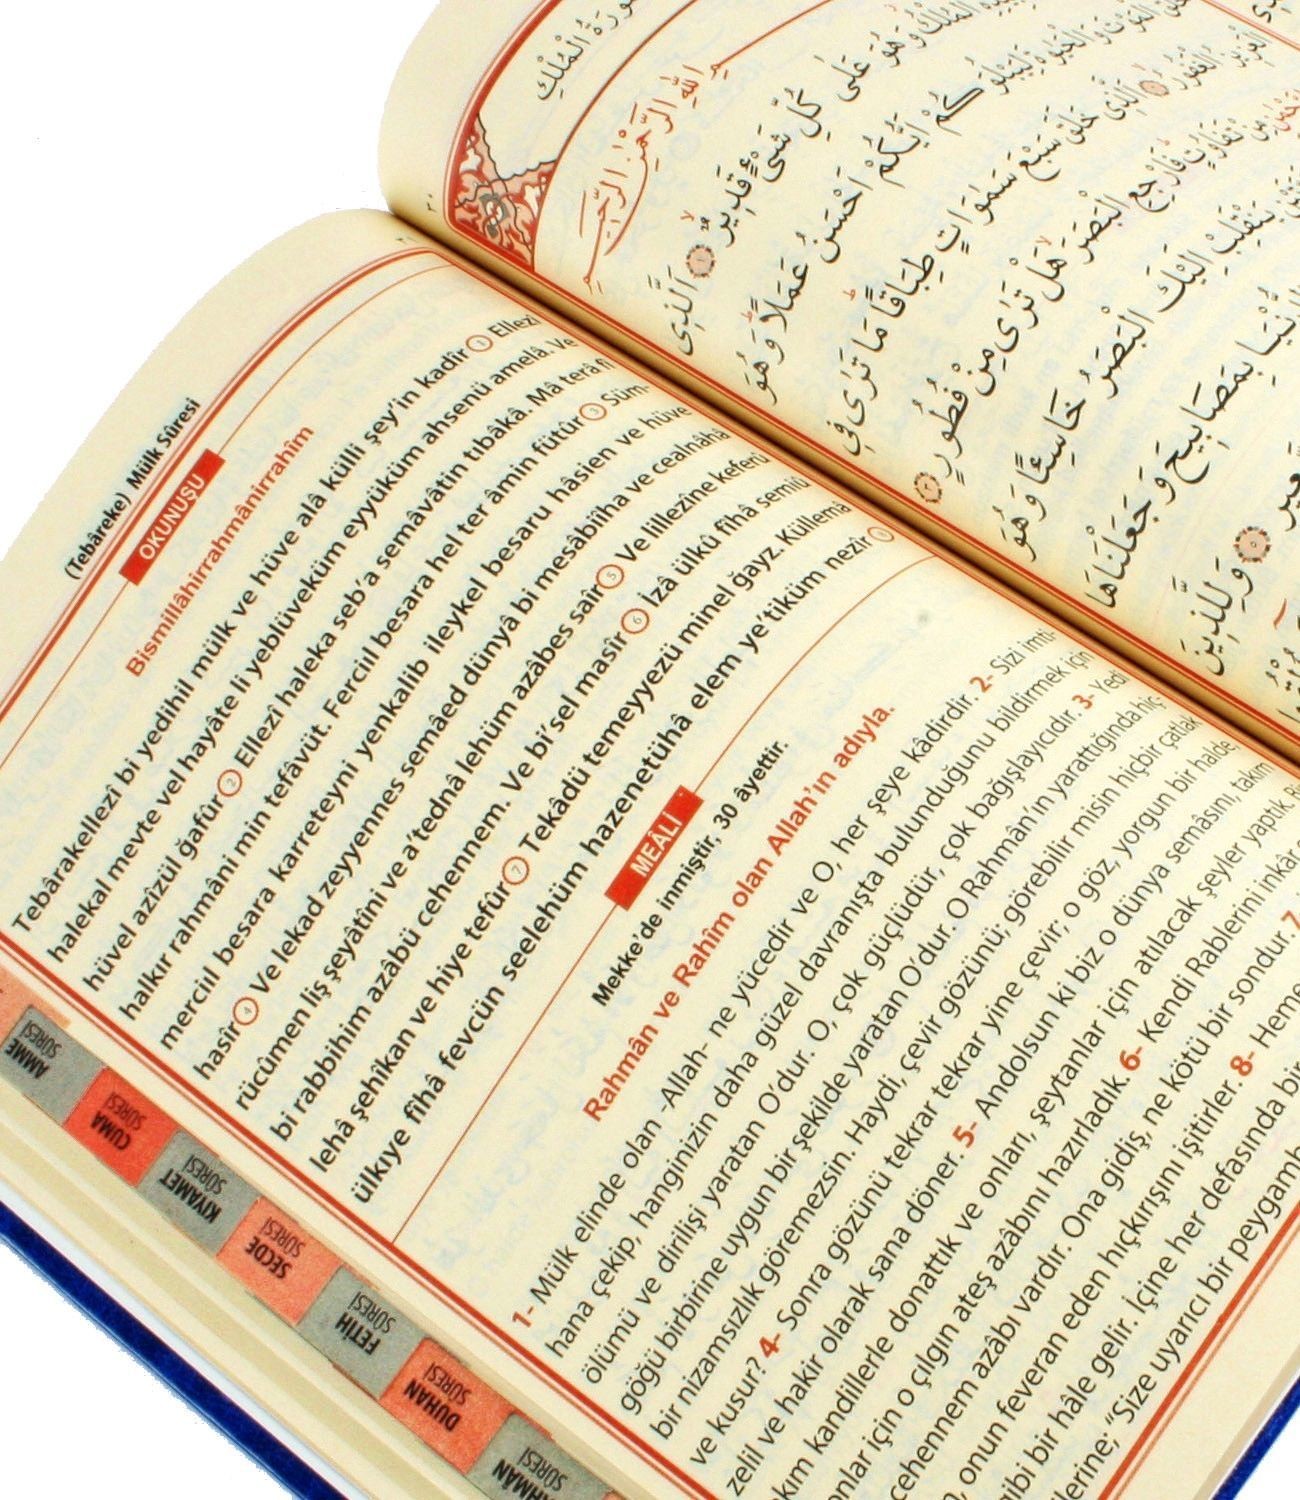 (Tebâreke) Mülk Sûresi
OKUNUŞU
Bismillâhirrahmânirrahîm
Tebârakellezî bi yedihil mülk ve hüve alâ külli şey’in kadîr 1 Ellezî
halekal mevte vel hayâte li yeblüveküm eyyüküm ahsenü amelâ. Ve
hüvel azîzül ğafûr 2 Ellezî haleka seb’a semâvâtin tıbâkâ. Mâ terâ fî
halkır rahmâni min tefâvüt. Ferciıl besara hel ter âmin fütûr 3 Süm-
merciıl besara karreteyni yenkalib ileykel besaru hâsien ve hüve
hasîr 4 Ve lekad zeyyennes semâed dünyâ bi mesâbîiha ve cealnâhâ
rücûmen liş şeyâtîni ve a’tednâ lehüm azâbes saîr 5 Ve lillezîne keferû
bi rabbihim azâbü cehennem. Ve bi’sel masîr 6 İzâ ülkû fîhâ semiû
lehâ şehîkan ve hiye tefûr 7 Tekâdü temeyyezü minel ğayz. Küllemâ
ülkıye fîhâ fevcün seelehüm hazenetühâ elem ye’tiküm nezîr 8
MEÂLİ
Mekke’de inmiştir, 30 âyettir.
Rahmân ve Rahîm olan Allah’ın adıyla.
1- Mülk elinde olan -Allah- ne yücedir ve O, her şeye kâdirdir. 2- Sizi imti-
hana çekip, hanginizin daha güzel davranışta bulunduğunu bildirmek için
ölümü ve dirilişi yaratan O’dur. O, çok güçlüdür, çok bağışlayıcıdır. 3- Yedi
göğü birbirine uygun bir şekilde yaratan O’dur. O Rahmân’ın yarattığında hiç-
bir nizamsızlık göremezsin. Haydi, çevir gözünü; görebilir misin hiçbir çatlak
ve kusur? 4- Sonra gözünü tekrar tekrar yine çevir; o göz, yorgun bir halde,
zelil ve hakir olarak sana döner. 5- Andolsun ki biz o dünya semâsını, takım
kım kandillerle donattık ve onları, şeytanlar için atılacak şeyler yaptık.
onlar için o çılgın ateş azabını hazırladık. 6- Kendi Rablerini inkâr
cehennem azâbı vardır. Ona gidiş, ne kötü bir sondur 7
onun feveran eden hıçkırışını işitirler. 8- Heme
gibi bir hâle gelir. İçine her defasında bir
lerine; “Size uyarıcı bir peygamb
AMME SÛRESİ
CUMA SÛRESİ
KIYAMET SÛRESİ
SECDE SÛRESİ
FETİH SÛRESİ
DUHAN SÛRESİ
HMÂN SÛRESİ
سُورَةُ الْمُلْكِ
اللّٰهِ الرَّحْمٰنِ الرَّحِيمِ
الْمُلْكُ وَهُوَ عَلٰى كُلِّ شَيْءٍ قَدِيرٌ ١ اَلَّذِى
الْمَوْتَ وَالْحَيٰوةَ لِيَبْلُوَكُمْ اَيُّكُمْ اَحْسَنُ عَمَلًا وَهُوَ
الْعَزِيزُ الْغَفُورُ ٢ اَلَّذِى خَلَقَ سَبْعَ سَمٰوَاتٍ طِبَاقًا مَا تَرٰى فِى
مِنْ تَفَاوُتٍ فَارْجِعِ الْبَصَرَ هَلْ تَرٰى مِنْ فُطُورٍ ٣
يَنْقَلِبْ اِلَيْكَ الْبَصَرُ خَاسِئًا وَهُوَ
الدُّنْيَا بِمَصَابِيحَ وَجَعَلْنَاهَا
السَّعِيرِ ٥ وَلِلَّذِينَ